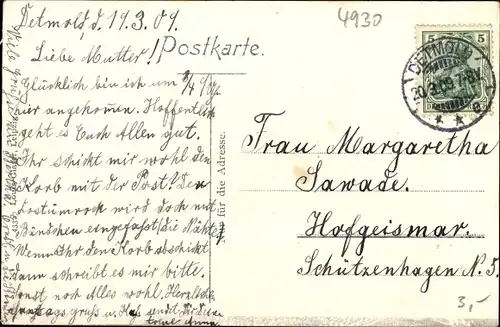 Detmold d. 19.3.09.
4930
Liebe Mutter!
Postkarte.
Glücklich bin ich um 3/4 9 Uhr
hier angekommen. Hoffentlich
geht es Euch Allen gut.
Ihr schickt mir wohl den
Korb mit der Post? Der
Costumrock wird doch mit
Bändchen eingefasst (die Nähte)
Wenn Ihr den Korb abschickt
dann schreibt es mir bitte.
Sonst noch Alles wohl. Herzliche
gruss u. Kuss sendet Dir Deine
Anna
für die Adresse.
5
5
DETMOLD
20.3.09.7-8V
* * c
Frau Margaretha
Sawade.
Hofgeismar.
Schützenhagen N. 5.
3,-